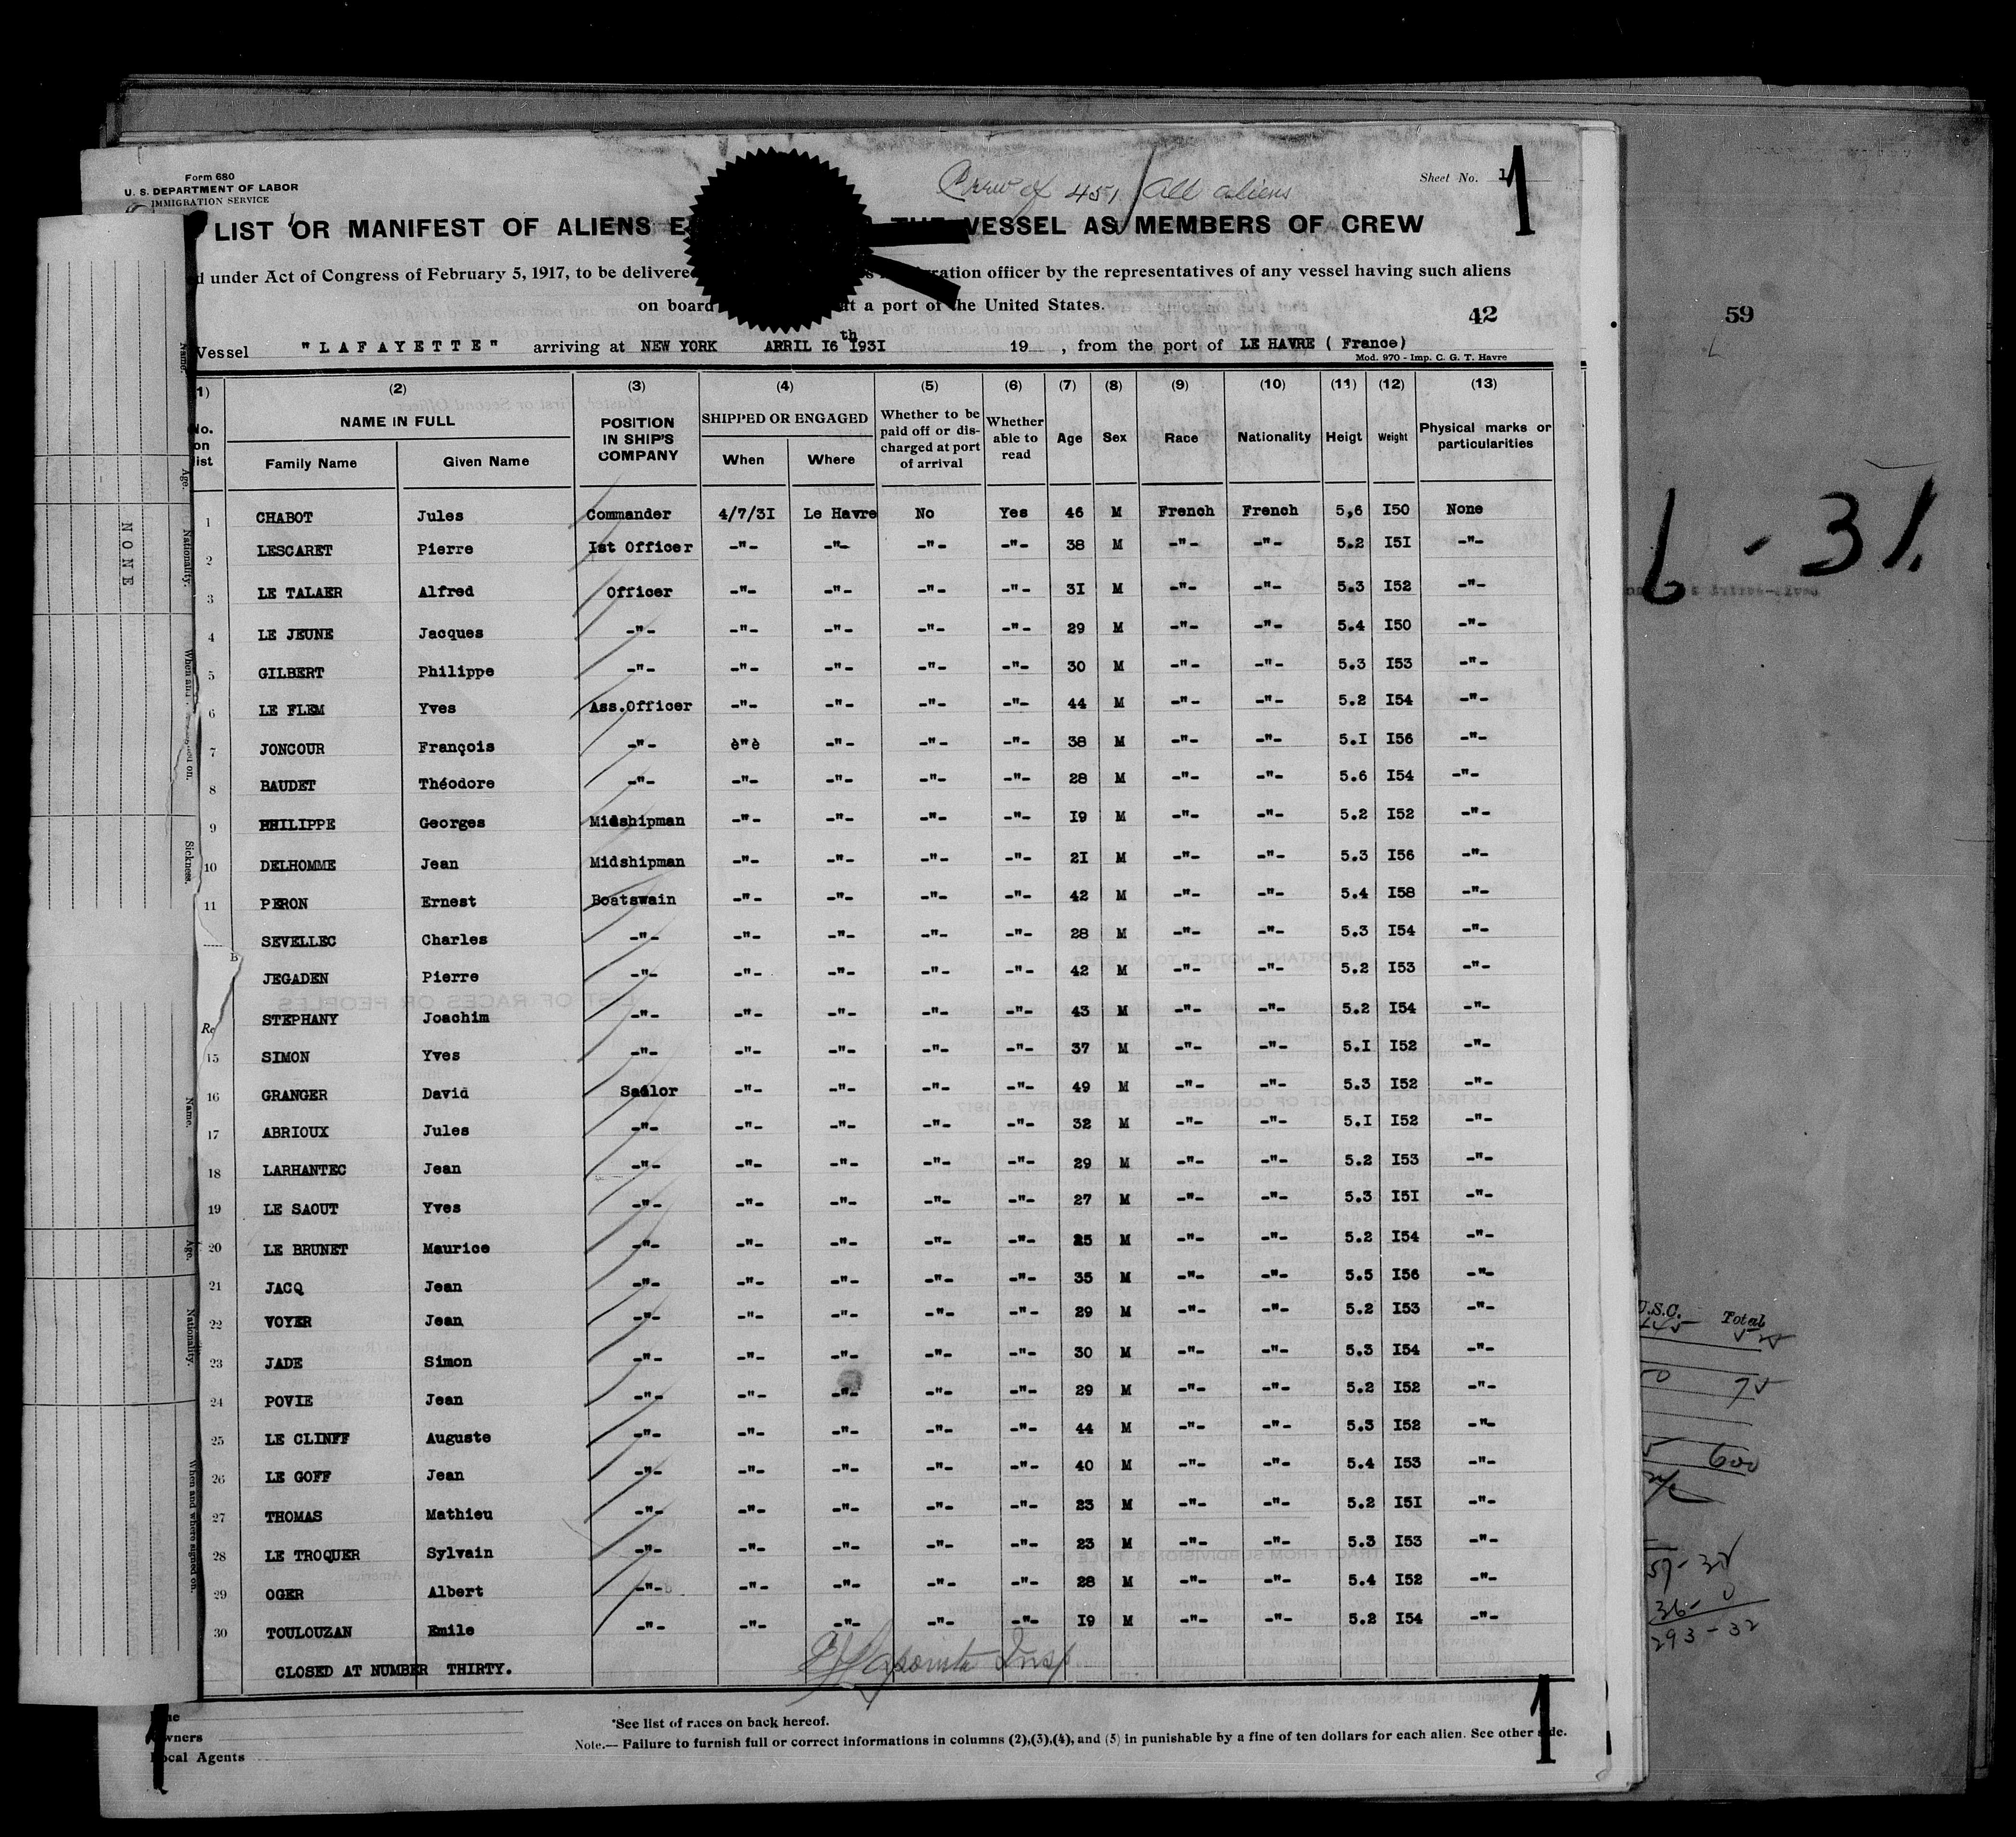 Form 680
U. S. DEPARTMENT OF LABOR
IMMIGRATION SERVICE
Crew of 451 / All aliens
Sheet No. 1
1
LIST OR MANIFEST OF ALIENS THE VESSEL AS MEMBERS OF CREW
under Act of Congress of February 5, 1917, to be officer by the representatives of any vessel having such aliens
on board at a port of the United States.
42
59
Vessel "LAFAYETTE" arriving at NEW YORK APRIL I6th I93I 19 , from the port of LE HAVRE ( France)
Mod. 970 - Imp. C. G. T. Havre
(2) (3) (4) (5) (6) (7) (8) (9) (10) (11) (12) (13)
No. on list NAME IN FULL Family Name Given Name POSITION IN SHIP'S COMPANY SHIPPED OR ENGAGED When Where Whether to be paid off or discharged at port of arrival Whether able to read Age Sex Race Nationality Heigt Weight Physical marks or particularities
1 CHABOT Jules Commander 4/7/3I Le Havre No Yes 46 M French French 5,6 I50 None
2 LESCARET Pierre Ist Officer -"- -"- -"- -"- 38 M -"- -"- 5.2 I5I -"-
3 LE TALAER Alfred Officer -"- -"- -"- -"- 3I M -"- -"- 5.3 I52 -"-
4 LE JEUNE Jacques -"- -"- -"- -"- -"- 29 M -"- -"- 5.4 I50 -"-
5 GILBERT Philippe -"- -"- -"- -"- -"- 30 M -"- -"- 5.3 I53 -"-
6 LE FLEM Yves Ass.Officer -"- -"- -"- -"- 44 M -"- -"- 5.2 I54 -"-
7 JONCOUR François -"- è"è -"- -"- -"- 38 M -"- -"- 5.I I56 -"-
8 BAUDET Théodore -"- -"- -"- -"- -"- 28 M -"- -"- 5.6 I54 -"-
9 PHILIPPE Georges Midshipman -"- -"- -"- -"- I9 M -"- -"- 5.2 I52 -"-
10 DELHOMME Jean Midshipman -"- -"- -"- -"- 2I M -"- -"- 5.3 I56 -"-
11 PERON Ernest Boatswain -"- -"- -"- -"- 42 M -"- -"- 5.4 I58 -"-
SEVELLEC Charles -"- -"- -"- -"- -"- 28 M -"- -"- 5.3 I54 -"-
JEGADEN Pierre -"- -"- -"- -"- -"- 42 M -"- -"- 5.2 I53 -"-
STEPHANY Joachim -"- -"- -"- -"- -"- 43 M -"- -"- 5.2 I54 -"-
15 SIMON Yves -"- -"- -"- -"- -"- 37 M -"- -"- 5.I I52 -"-
16 GRANGER David Sailor -"- -"- -"- -"- 49 M -"- -"- 5.3 I52 -"-
17 ABRIOUX Jules -"- -"- -"- -"- -"- 32 M -"- -"- 5.I I52 -"-
18 LARHANTEC Jean -"- -"- -"- -"- -"- 29 M -"- -"- 5.2 I53 -"-
19 LE SAOUT Yves -"- -"- -"- -"- -"- 27 M -"- -"- 5.3 I5I -"-
20 LE BRUNET Maurice -"- -"- -"- -"- -"- 25 M -"- -"- 5.2 I54 -"-
21 JACQ Jean -"- -"- -"- -"- -"- 35 M -"- -"- 5.5 I56 -"-
22 VOYER Jean -"- -"- -"- -"- -"- 29 M -"- -"- 5.2 I53 -"-
23 JADE Simon -"- -"- -"- -"- -"- 30 M -"- -"- 5.3 I54 -"-
24 POVIE Jean -"- -"- -"- -"- -"- 29 M -"- -"- 5.2 I52 -"-
25 LE CLINFF Auguste -"- -"- -"- -"- -"- 44 M -"- -"- 5.3 I52 -"-
26 LE GOFF Jean -"- -"- -"- -"- -"- 40 M -"- -"- 5.4 I53 -"-
27 THOMAS Mathieu -"- -"- -"- -"- -"- 23 M -"- -"- 5.2 I5I -"-
28 LE TROQUER Sylvain -"- -"- -"- -"- -"- 23 M -"- -"- 5.3 I53 -"-
29 OGER Albert -"- -"- -"- -"- -"- 28 M -"- -"- 5.4 I52 -"-
30 TOULOUZAN Emile -"- -"- -"- -"- -"- I9 M -"- -"- 5.2 I54 -"-
CLOSED AT NUMBER THIRTY.
Insp
*See list of races on back hereof.
Note.— Failure to furnish full or correct informations in columns (2),(3),(4), and (5) in punishable by a fine of ten dollars for each alien. See other side.
Owners
Local Agents
1
1
NONE
Name.
Age.
Nationality.
Sickness.
Name.
Age.
Nationality.
When and where signed on.
6 - 31.
U.S.C. Total
600
293-32